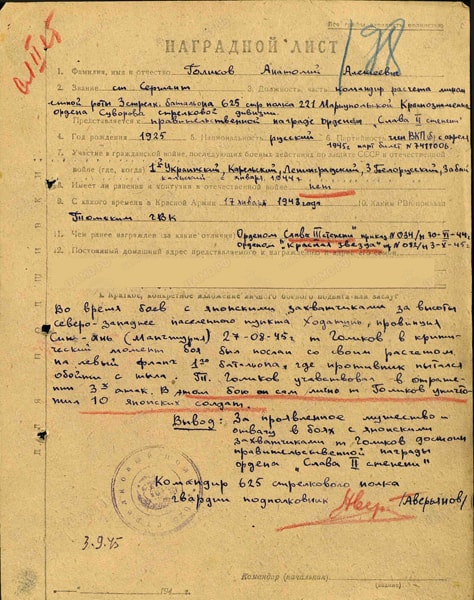 198
НАГРАДНОЙ ЛИСТ
1. Фамилия, имя и отчество Голиков Анатолий Алексеевич
2. Звание ст Сержант 3. Должность, часть командир расчета
ной роты 3 стрелк. батальона 625 стр. полка 221 Мариупольской Краснознаменной
ордена Суворова стрелковой дивизии.
Представляется к правительственной награде Орденом „Слава II степени"
4. Год рождения 1925 5. Национальность русский 6. Партийность член ВКП(б) с апреля
1945г. парт билет № 7419006
7. Участие в гражданской войне, последующих боевых действиях по защите СССР и отечественной
войне (где, когда) 1й Украинский, Карельский, Ленинградский, 3 Белорусский, Забай
кальский с января 1944г.
8. Имеет ли ранения и контузии в отечественной войне нет
9. С какого времени в Красной Армии 17 января 1943 года 10. Каким РВК призван
Томским ГВК
11. Чем ранее награжден (за какие отличия) Орденом „Слава III степени" приказ № 034/н 30-VI-44г.
орденом „Красная звезда" пр № 092/н 3-X-45г.
12. Постоянный домашний адрес представляемого к награждению
I. Краткое, конкретное изложение личного боевого подвига или заслуг
Во время боев с японскими захватчиками за высоты
северо-западнее населенного пункта провинция
(Манчжурия) 27-08-45г т Голиков в крити-
ческий момент боя был послан со своим расчетом
на левый фланг 1го батальона, где противник пытался
обойти с тыла. Т. Голиков участвовал в отраже-
нии 3х атак. В этом бою он сам лично т Голиков уничто
жил 10 японских солдат.
Вывод: За проявленное мужество и
отвагу в боях с японскими
захватчиками т Голиков достоин
правительственной награды
ордена „Слава II степени"
Командир 625 стрелкового полка
гвардии подполковник /Аверьянов/
3.9.45
Командир (начальник)
194 г.